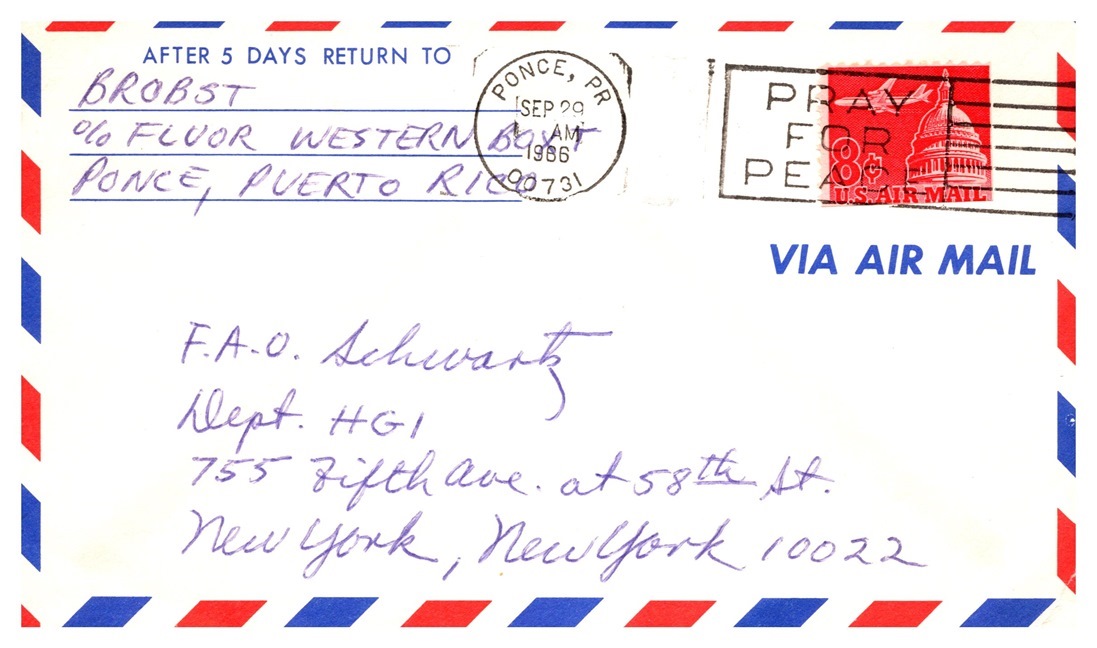 AFTER 5 DAYS RETURN TO
BROBST
% FLUOR WESTERN BOX T
PONCE, PUERTO RICO
PONCE, PR
SEP 29
AM
1966
00731
PRAY
FOR
PEACE
8¢
U.S. AIR MAIL
VIA AIR MAIL
F.A.O. Schwartz
Dept. HG1
755 Fifth Ave. at 58th St.
New York, New York 10022